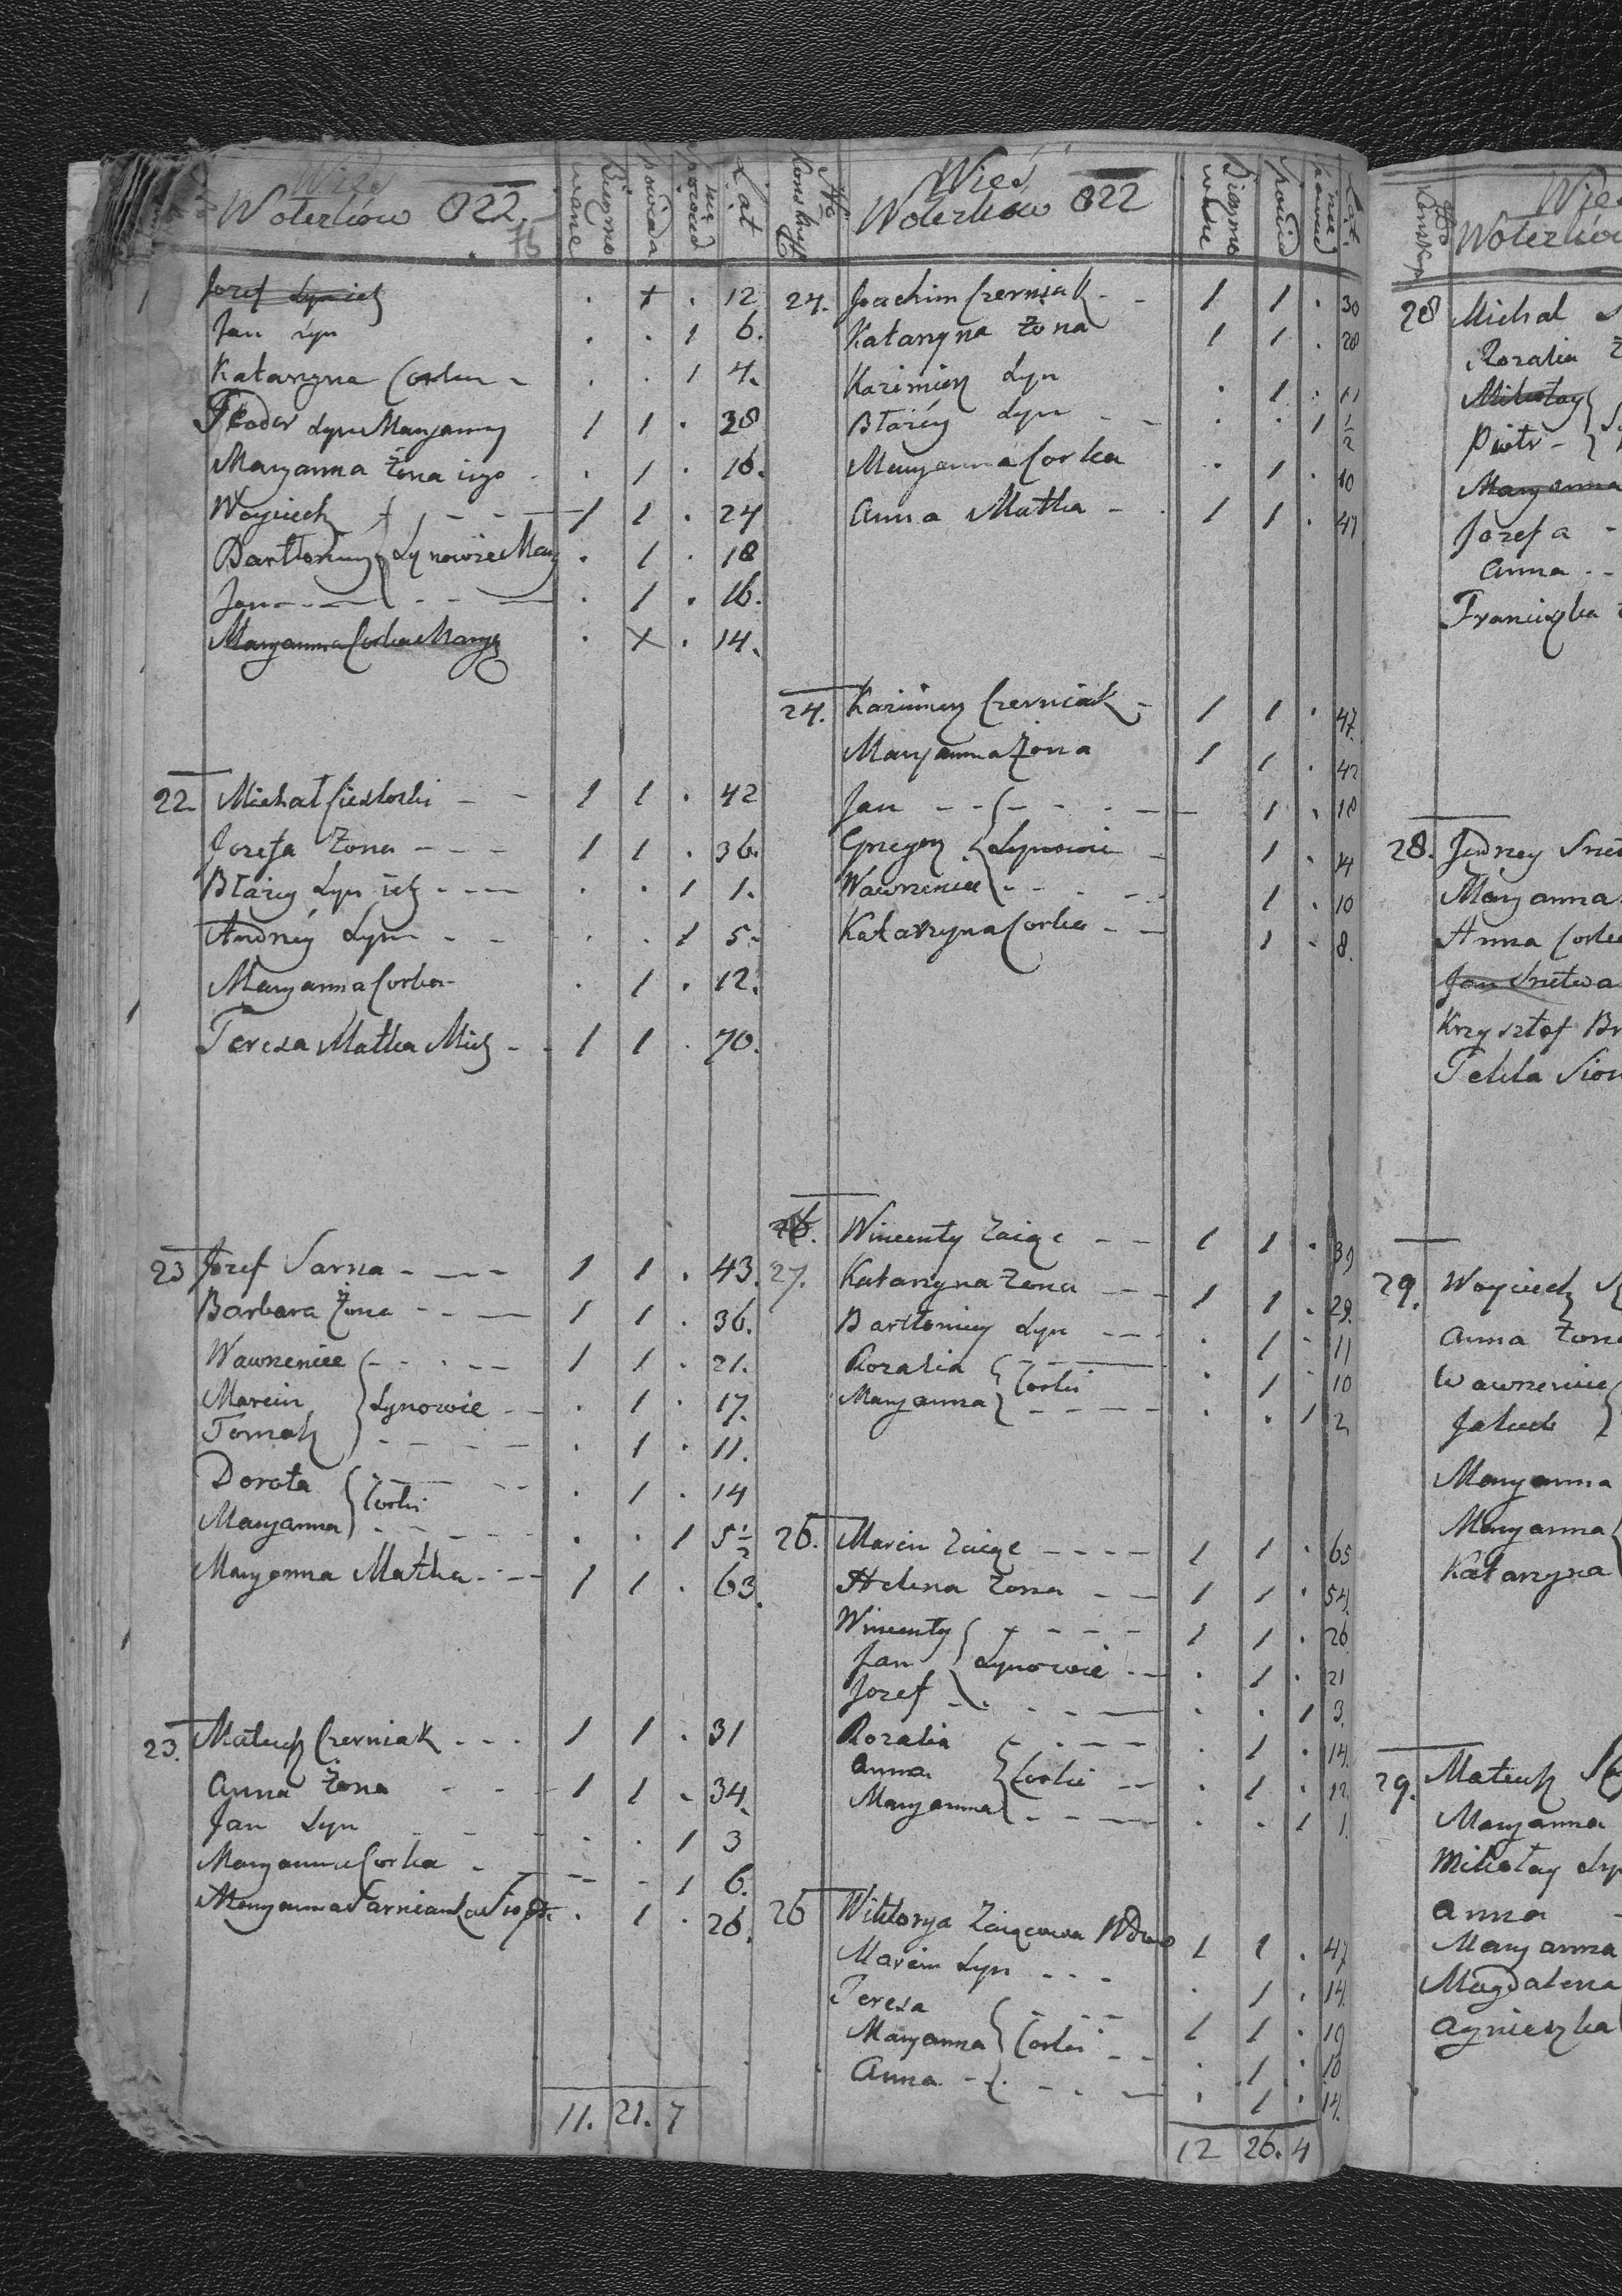 Wieś
Woterków 822
75
Bieżmo
wane
spowiada
nie
spowied
Lat
Jozef Syn ich . + . 12
Jan Syn . . 1 6.
Katarzyna Corka . . 1 4.
Teodor Syn Maryanny 1 1 . 38
Maryanna Żona iego . 1 . 16.
Woyciech 1 1 . 24
Bartłomiey Synowie Mary . 1 . 18
Jan . 1 . 16.
Maryanna Corka Mary . + . 14.
22 Michał 1 1 . 42
Jozefa Żona 1 1 . 36.
Błażey Syn ich . . 1 1.
Andrzey Syn . . 1 5.
Maryanna Corka . 1 . 12.
Teresa Matka Mich 1 1 . 70.
23 Jozef Sarna 1 1 . 43.
Barbara Żona 1 1 . 36.
Wawrzeniec 1 1 . 21.
Marcin Synowie . 1 . 17.
Tomasz . 1 . 11.
Dorota . 1 . 14
Corki
Maryanna . . 1 5½
Maryanna Matka 1 1 . 63.
23. Mateusz Czerniak 1 1 . 31
Anna Żona 1 1 . 34.
Jan Syn . . 1 3
Maryanna Corka - - 1 6.
Maryanna . 1 . 26.
11. 21. 7
No
Konskryp
Wieś
Woterków 822
Bieżmo
wane
spowied
nie
Lat
24. Joachim Czerniak 1 1 . 30
Katarzyna Żona 1 1 . 28
Kazimierz Syn . 1 . 11
Błażey Syn . . 1 ½
Maryanna Corka . 1 . 10
Anna Matka 1 1 . 47
24. Kazimierz Czerniak 1 1 . 47.
Maryanna Żona 1 1 . 42
Jan 1 . 18
Grzegorz Synowie 1 . 14
Wawrzeniec 1 . 10
Katarzyna Corka 1 . 8.
26. Wincenty Zaiąc 1 1 . 39
27. Katarzyna Żona 1 1 . 29.
Bartłomiey Syn . 1 . 11
Rozalia . 1 . 10
Corki
Maryanna . . 1 2
26. Marcin Zaiąc 1 1 . 65
Helena Żona 1 1 . 54.
Wincenty 1 1 . 26
Jan Synowie . 1 . 21
Jozef . . 1 3.
Rozalia . 1 . 14.
Anna Corki . 1 . 12.
Maryanna . . 1 1.
26 Wiktorya Zaiącowa Wdowa 1 1 . 47
Marcin Syn . 1 . 14.
Teresa 1 1 . 19
Maryanna Corki . 1 . 18
Anna . 1 . 14.
12 26. 4
No
Konskryp
Wieś
Woterków
28 Michał
Rozalia
Mikołay
Piotr
Maryanna
Jozefa
Anna
Franciszka
28. Jedrzey
Maryanna
Anna Corka
Jan
Krzysztof
Tekla
29. Woyciech
Anna Żona
Wawrzeniec
Jakub
Maryanna
Maryanna
Katarzyna
29. Mateusz
Maryanna
Mikołay Syn
Anna
Maryanna
Magdalena
Agnieszka